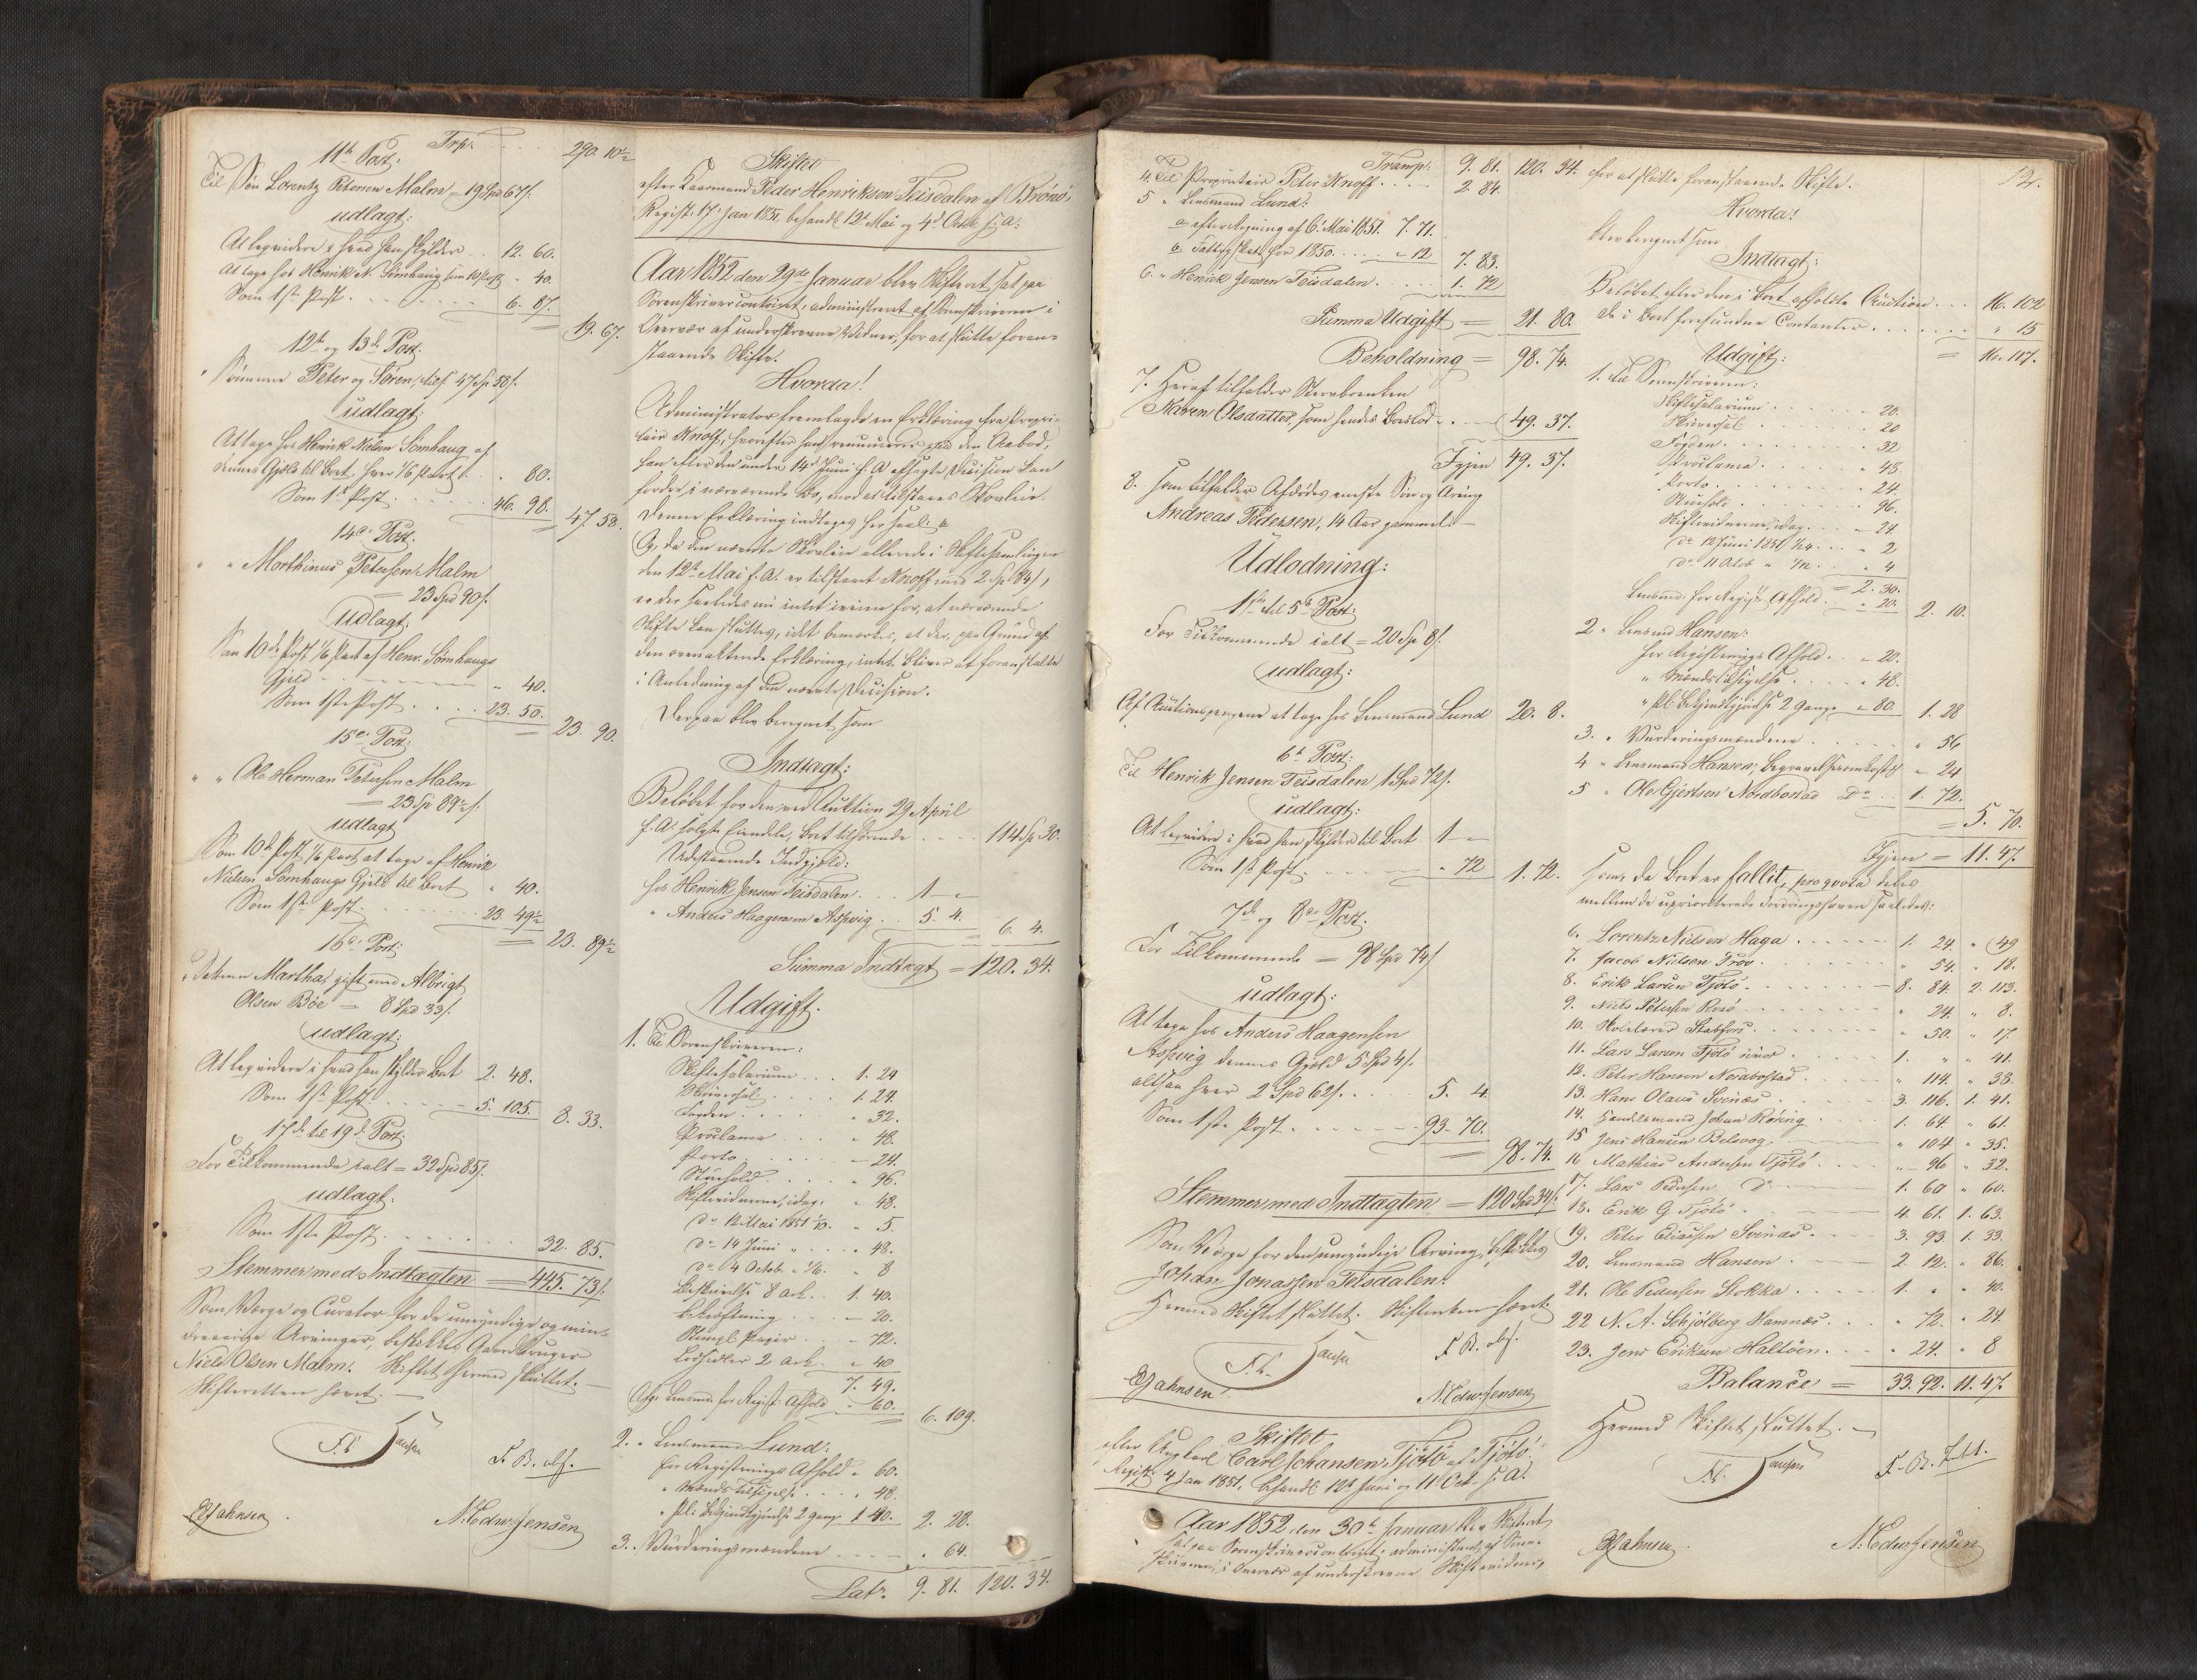 11te Post. Trsp. . . 290. 10½
Til Søn Lorentz Petersen Malm = 19 Spd 67 s.
udlagt:
At liqvidere i hvad han skylder . . 12. 60.
At tage hos Henrik N. Sømhaug som 10 Post " 40.
Som 1ste Post . . . . . 6. 87.
= 19. 67.
12te og 13de Post.
" Sønnerne Peter og Søren, tils. 47 Sp 58 s.
udlagt:
At tage hos Henrik Nielsen Sømhaug af
dennes Gjeld til Boet, hver 1/6 Part . . " 80.
Som 1ste Post . . . . 46. 98.
= 47. 58.
14de Post.
" " Morthinus Petersen Malm
= 23 Spd 90 s.
udlagt:
Som 10de Post 1/6 Part af Henr. Sømhaugs
Gjeld . . . " 40.
Som 1ste Post . . . . 23. 50.
= 23. 90.
15de Post.
" " Ole Herman Petersen Malm
= 23 Sp 89½ s.
udlagt
Som 10de Post 1/6 Part at tage af Henrik
Nielsen Sømhaugs Gjeld til Boet " 40.
Som 1ste Post . . . . 23. 49½
= 23. 89½
16de Post:
" Datteren Martha, gift med Albrigt
Olsen Bøe = 8 Spd 33 s.
udlagt:
At liqvidere i hvad han skylder Boet 2. 48.
Som 1ste Post . . . . 5. 105. 8. 33.
17de til 19de Post:
For Tilkommende ialt = 32 Spd 85 s.
udlagt.
Som 1ste Post . . . . . 32. 85.
Stemmer med Indtægten = 445. 73 s.
Som Værge og Curator for de umyndige og min-
dreaarige Arvinger, beskikkes Gaardbruger
Niels Olsen Malm. Skiftet hermed sluttet. —
Skifteretten hævet. —
F. B. obs.
EJahnsen N. Edw. Jensen
Skiftet
efter Kaarmand Peder Henriksen Teisdalen af Brønø,
Regist. 17 Jan 1851, behandl. 12te Mai og 4de Octbr s: A:
Aar 1852 den 29de Januar blev Skifteret sat paa
Sorenskrivercontoiret, administreret af Sorenskriveren i
Overvær af underskrevne Vidner, for at slutte foran-
staaende Skifte.
Hvorda!
Administrator fremlagde en Erklæring fra Propri-
tair Knoff, hvorefter han renuncerer paa den Aabod,
han efter den under 14de Juni f. A. afsagte Decision kan
fordre i nærværende Bo, mod at tilstaaes Skovleie.
Denne Erklæring indtages her saal:
Og, da den nævnte Skovleie allerede i Skiftesamlingen
den 12te Mai f. A. er tilstaaet Knoff med 2 Sp 84 s,
er der saaledes nu intet iveien for, at nærværende
Skifte kan sluttes, idet bemærkes, at der, paa Grund af
den ovenmeldte Erklæring, intet bliver at foranstalte
i Anledning af den nævnte Decision.
Derpaa blev beregnet som
Indtægt:
Beløbet for den ved Auktion 29 April
f. A. solgte Eiendele, Boet tilhørende . . . 114 Sp 30.
Udestaaende Indgjeld:
hos Henrik Jensen Teisdalen . . 1 "
" Anders Haagensen Aspvig . . 5. 4. 6. 4.
Summa Indtægt = 120. 34.
Udgift.
1. Til Sorenskriveren:
Skiftesalarium . . . 1. 24
Skriversal. . . . . 1. 24.
Fogden . . . . . " 32.
Proclama . . . . " 48.
Porto . . . . . " 24.
Stuehold . . . . " 96.
Skiftevidnerne, idag . " 48.
do 12 Mai 1851 1/10. " 5.
do 14 Juni " . . . " 48.
do 4 Octob " 1/6. . " 8
Beskrivelse 8 Ark . 1. 40.
Bekræftning . . . " 20.
Stempl. Papir . . " 72.
Lodsedler 2 Ark . " 40
7. 49.
Afg: Lensmd. for Regist: Afhold " 60. 6. 109.
2. " Lensmand Lund:
for Registrerings Afhold " 60.
" Mænds tilsigelse . . . " 48.
" Pl. Bekjendtgjørelse 2 gange 1 40. 2. 28.
3. " Vurderingsmændene . . . " 64.
Lats 9. 81. 120. 34.
Transp. 9. 81. 120. 34.
4. Til Proprietair Peter Knoff . . . 2. 84.
5 " Lensmand Lund:
a efter Regning af 6 Mai 1851. 7. 71.
b Fattigskat for 1850 . . . " 12 7. 83.
6. " Henrik Jensen Teisdalen . . . 1. 72
Summa Udgift = 21. 80.
Beholdning = 98. 74.
7. Heraf tilfalder Stervboenken
Karen Olsdatter, som hendes Boeslod . . 49. 37.
Igjen 49. 37.
8. som tilfalder Afdødes eneste Søn og Arving
Andreas Pedersen, 14 Aar gammel. —
Udlodning:
1ste til 5te Post:
For Tilkommende ialt = 20 Sp 8 s.
udlagt:
Af Auctionspengene at tage hos Lensmand Lund 20. 8.
6te Post:
Til Henrik Jensen Teisdalen 1 Spd 72 s.
udlagt:
At liqvidere i hvad han skylder til Boet 1 "
Som 1ste Post . . . . " 72 1. 72.
7de og 8de Post.
For Tilkommende = 98 Spd 74 s
udlagt:
At tage hos Anders Haagensen
Aspvig dennes Gjæld 5 Spd 4 s.
altsaa hver 2 Spd 62 s. . . . 5. 4.
Som 1ste Post . . . . . 93. 70.
= 98. 74.
Stemmer med Indtægten = 120 Spd 34 s.
Som Værge for den umyndige Arving, beskikkes
Johan Jonassen Teisdalen.
Hermed Skiftet sluttet. Skifteretten hævet.
F. B. obs.
EJahnsen N. Edw. Jensen
Skiftet
efter Ungkarl Carl Johansen Tjøtø af Tjøtø
Regist. 4 Jan 1851, behandl. 12te Juni og 11 Oct. s. A.
Aar 1852, den 30te Januar blev Skifteret
sat paa Sorenskrivercontoiret, administreret af Soren-
skriveren, i Overvær af underskrevne Skiftevidner,
for at slutte foranstaaende Skifte. 124.
Hvorda!
blev beregnet som
Indtægt:
Beløbet efter den i Boet afholdte Auction . . . 16. 102
De i Boet forefundne Contanter . . . . " 15
= 16. 117.
Udgift:
1. Til Sorenskriveren:
Skiftesalarium . . . . . " 20.
Skriversal. . . . . . " 20
Fogden . . . . . . " 32
Proclama . . . . . " 48.
Porto . . . . . . " 24.
Stuehold . . . . . " 96.
Skiftevidnerne, idag . . . " 24
do 12 Juni 1851 1/24 . . " 2
do 11 Octb " 1/12 . . " 4
= 2. 30.
Lensmd. for Regist: Afhold . . " 20. 2. 10.
2 " Lensmd Hansen:
for Registrerings Afhold . . " 20.
" Mændstilsigelse . . . . " 48.
" Pl. Bekjendtgjørelse 2 Gange " 80. 1. 28
3. " Vurderingsmændene . . . . " 56
4 " Lensmand Hansen, Begravelsesomkostn. " 24
5 " Ole Gjertsen Nordbostad Do . . 1. 72.
= 5. 70.
Igjen = 11. 47.
som, da Boet er fallit, pro qvota deles
mellem de uprioriterede Fordringshavere saaledes:
6. Lorentz Nielsen Haga . . . 1. 24. " 49
7. Jacob Nielsen Troo . . . " 54. " 18.
8. Erik Larsen Tjøtø . . . 8. 84. 2. 113.
9. Niels Petersen Rosø . . . " 24. " 8.
10. Skolelærer Stabfors . . . " 50. " 17
11. Lars Larsen Tjøtø . . 1. " " 41.
12. Peter Hansen Nordbostad . . " 114. " 38.
13. Hans Olaus Svinæs . . 3. 116. 1. 41.
14. Handelsmand Johan Røring . . 1. 64. " 61.
15 Jens Hansen Belsvog . . " 104 " 35.
16 Mathias Andersen Tjøtø . . " 96 " 32.
17. Lars Pedersen Do . . 1. 60 " 60.
18. Erik G Tjøtø . . 4. 61. 1. 63.
19. Peter Eliassen Svinæs . . 3. 93. 1. 33.
20. Lensmand Hansen . . 2 12. " 86.
21. Ole Pedersen Stokka . . 1. " " 40.
22 N. A. Schjølberg Hamnæs . . " 72. " 24.
23. Jens Eriksen Haltøen . . " 24. " 8
Balance = 33. 92. 11. 47.
Hermed Skiftet sluttet. —
EJahnsen N. Edw. Jensen